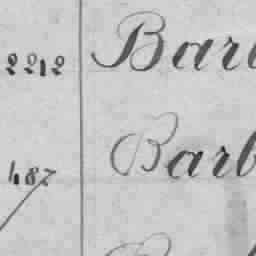 2212 Bar
487 Barb